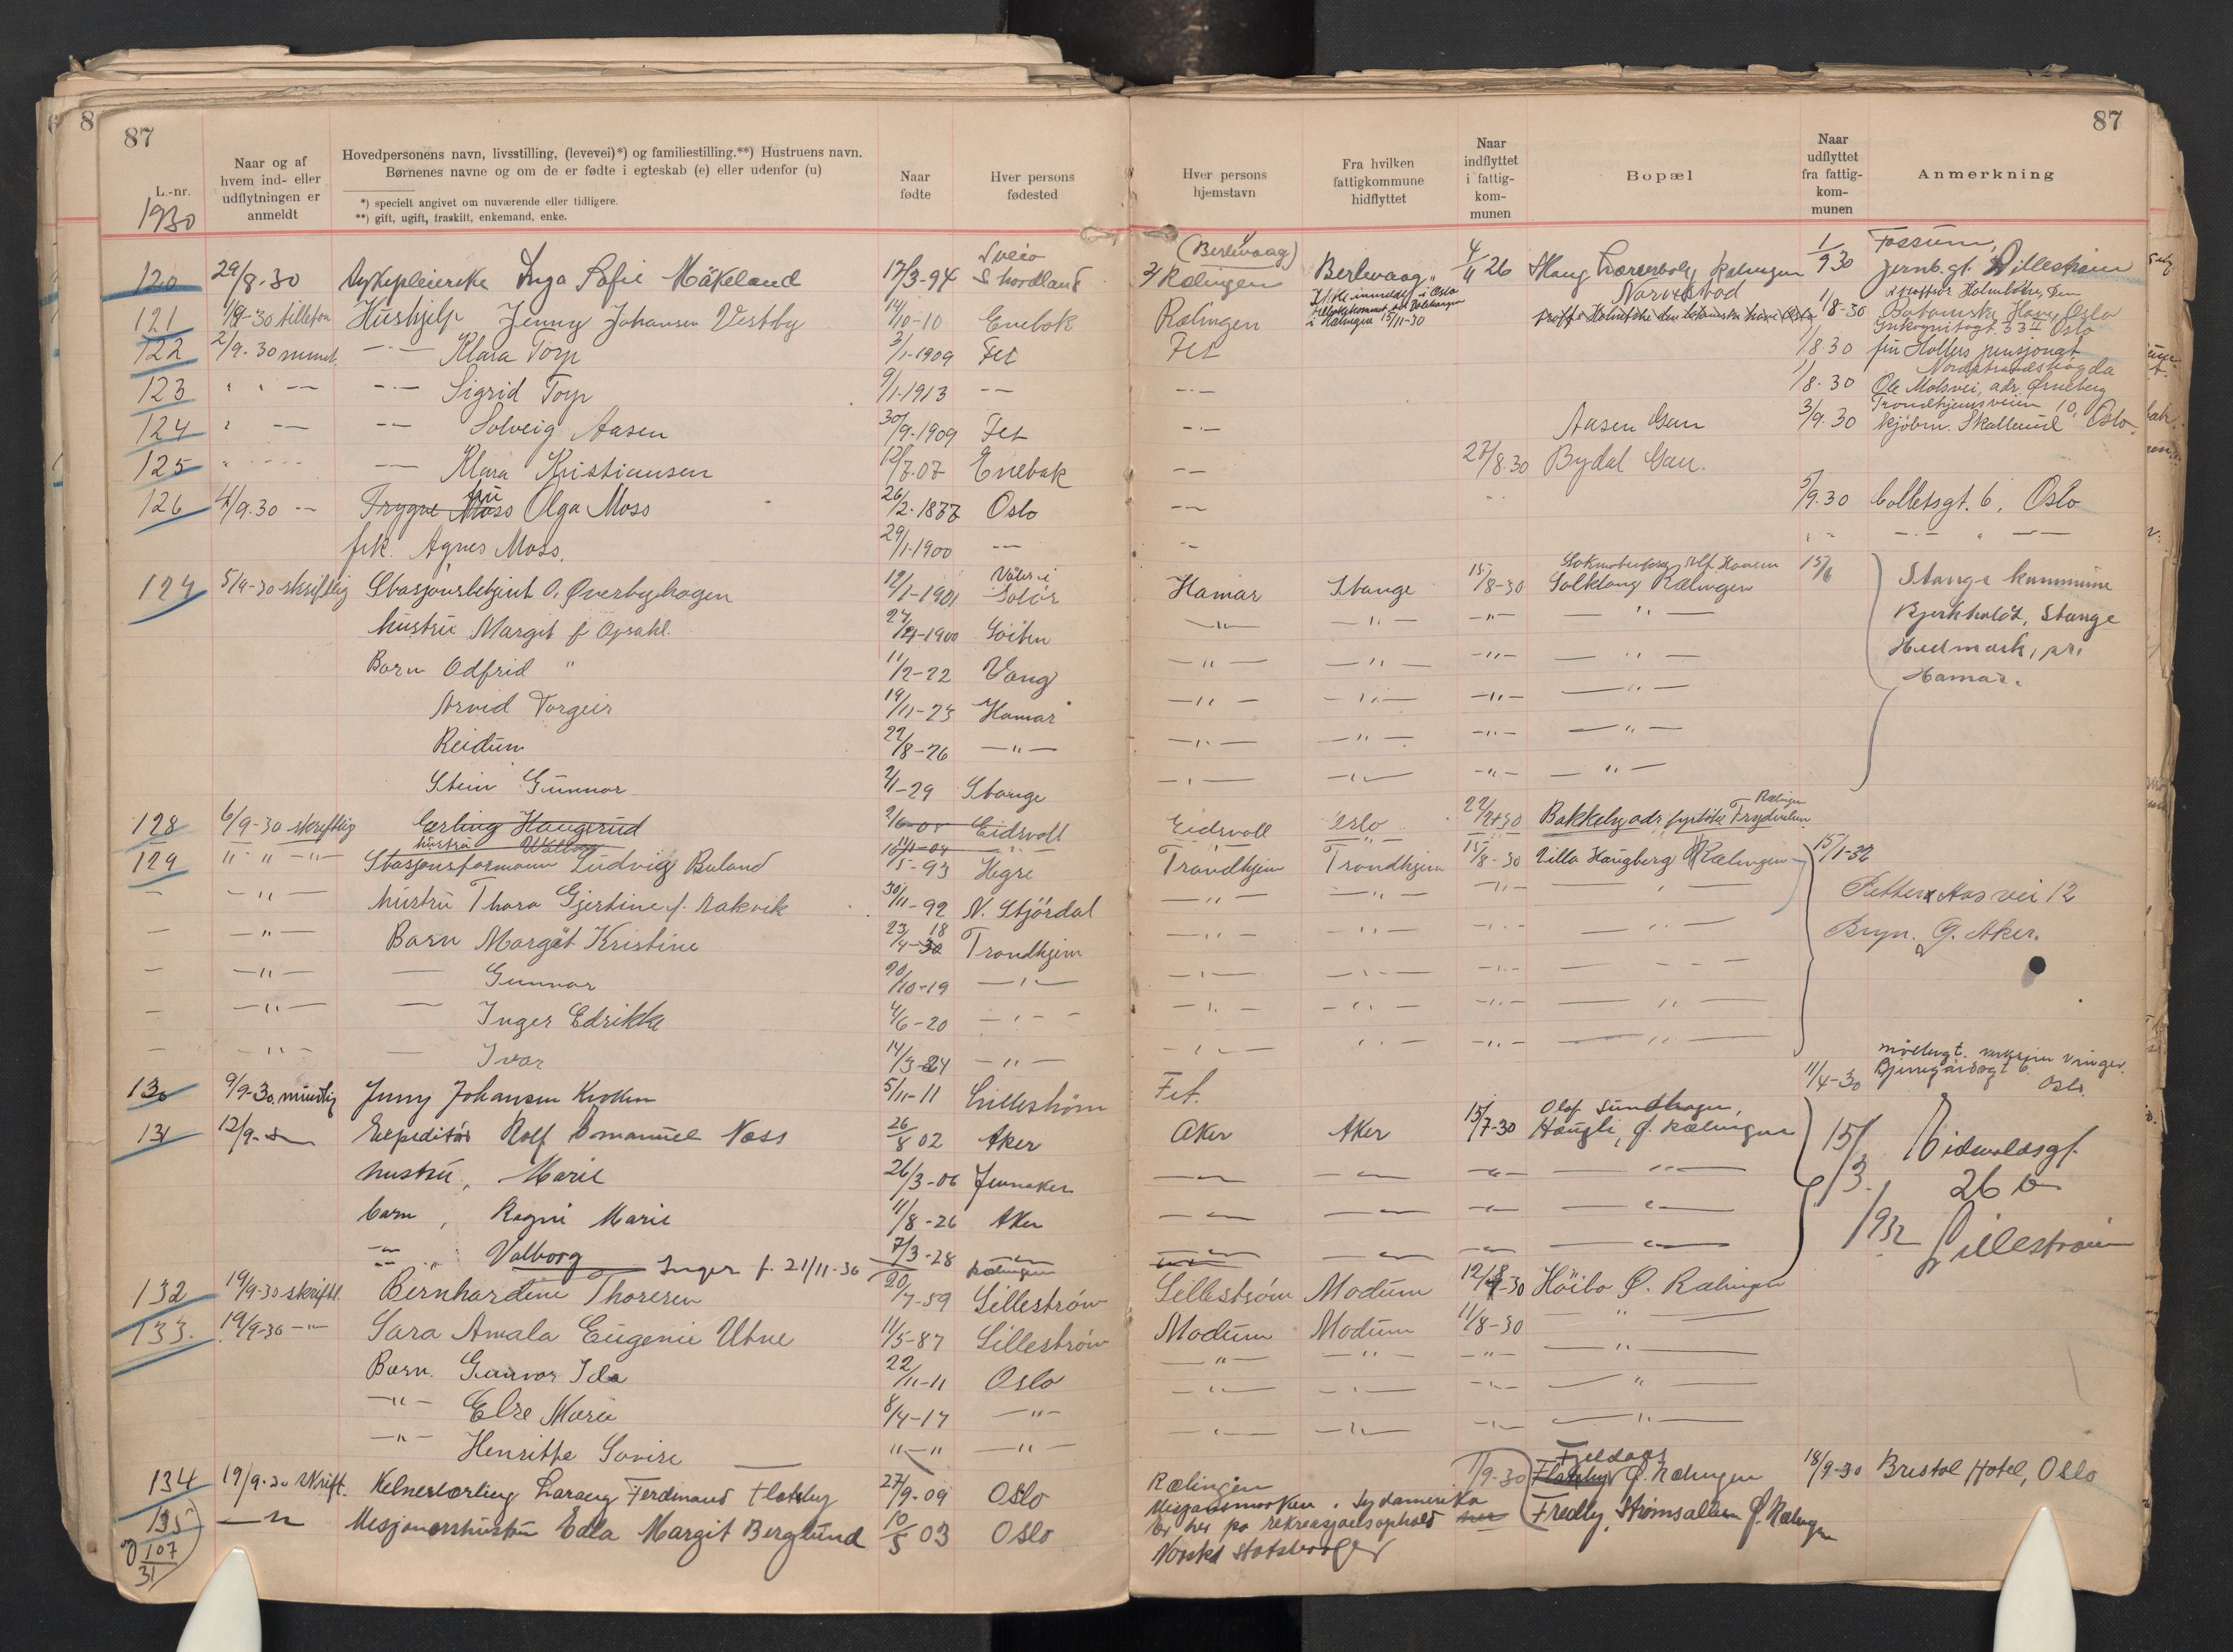 87
87
L.-nr.
1930
Naar og af hvem ind- eller udflytningen er anmeldt
Hovedpersonens navn, livsstilling, (levevei)*) og familiestilling.**) Hustruens navn.
Børnenes navne og om de er fødte i egteskab (e) eller udenfor (u)
*) specielt angivet om nuværende eller tidligere.
**) gift, ugift, fraskilt, enkemand, enke.
Naar fødte
Hver persons fødested
Hver persons hjemstavn
Fra hvilken fattigkommune hidflyttet
Naar indflyttet i fattig-kom-munen
Bopæl
Naar udflyttet fra fattig-kom-munen
Anmerkning
120 29/8-30 Sykepleierske Inga Sofie Mäkeland 17/3-94 Sveio S. hordland (Berlevaag) Rælingen Berlevaag 4/11 26 Rælingen 1/9 30 Fossum, Jernb.gt. Lillestrøm
121 1/9-30 telefon Hushjelp Jenny Johansen Vestby 14/10-10 Enebak Rælingen 1/8-30 Botaniske Have, Oslo
122 2/9.30 -·- Klara Torp 3/1-1909 Fet Fet 1/8.30 fru Holters pensjonat
123 " " -- -·- Sigrid Torp 9/1-1913 -- -·- 1/8.30 Ole Molsvei, adr. Ørneberg
124 " -- -- Solveig Aasen 30/9-1909 Fet -·- Aasen Gan 3/9.30 Trondhjemsveien 10, kjøbm. Skallerud Oslo
125 -- Klara Kristiansen 12/7.07 Enebak -- 27/8.30 Bydal Gan.
126 4/9.30 -- Trygve Moss fru Olga Moss 26/2-1877 Oslo -- 5/9.30 Colletsgt. 6, Oslo
frk. Agnes Moss. 29/1-1900 --
127 5/9-30 skriftlig Stasjonsbetjent O. Øverbyhagen 12/1-1901 Våler i Solør Hamar Stange 15/8-30 Solklang Rælingen 15/6 Stange kommune
hustru Margit f Opsahl. 1900 Løiten Bjerkholdt, Stange
Barn Odfrid " 11/2-22 Vang Hedmark, pr.
Arvid Torgeir 19/11-23 Hamar Hamar.
Reidun 22/8-26 -"-
Stein Gunnar 2/1-29 Stange
128 6/9-30 skriftlig Erling Haugerud Eidsvoll Eidsvoll Oslo Bakkeby adr. Rælingen
hustru
129 " " -"- Stasjonsformann Ludvig Buland 1/5-93 Hegre Trondhjem Trondhjem 15/8-30 Villa Haugberg Rælingen 15/1-32
- -"- hustru Thora Gjertine f. Rakvik 30/11-92 N. Stjørdal Petter Aas vei 12
- -"- Barn Margat Kristine 23/4-18 Trondhjem Bryn. Ø. Aker.
- -"- - Gunnar 20/10-19 -"-
- -"- - Inger Edrikke 4/6-20
- -"- - Ivar 14/3-24 -"-
130 9/9-30. mundtlig Jenny Johansen Krokum 5/11-11 Lillestrøm Fet. 11/4-30 Oslo
131 12/9 Expeditør Rolf Emanuel Næss 26/8 02 Aker Aker Aker 15/7-30 Olaf Sundhagen, Haugli, Ø. Rælingen 15/3 1932 Eidsvoldsgt. 26 b Lillestrøm
hustru, Marie 26/3-06 Jevnaker
barn, Ragni Marie 11/8-26 Aker
Valborg 7/3-28 Inger f. 21/11-30 Rælingen
132 19/9-30 skriftl. Bernhardine Thoresen 20/7-59 Lillestrøm Lillestrøm Modum 12/8-30 Høibo Ø. Rælingen
133. 19/9-30 -"- Sara Amala Eugenie Utne 11/5-87 Lillestrøm Modum Modum 11/8-30
Barn. Gunvor Ida 22/11-11 Oslo
-"- Else Marie 8/4-17 -"-
-"- Henriette Lovise "-" -"-
134 19/9-30 skrift. Kelnerlærling Ferdinand Flateby 27/9-09 Oslo Rælingen 1/9-30 Ø. Rælingen 18/9-30 Bristol Hotel, Oslo
135 Misjonærhustru Edla Margit Berglund 10/5 03 Oslo Sydamerika Fredly, Strømsalleen Ø. Rælingen
Er her på rekreasjonsophold
Norsk statsborger
107/31